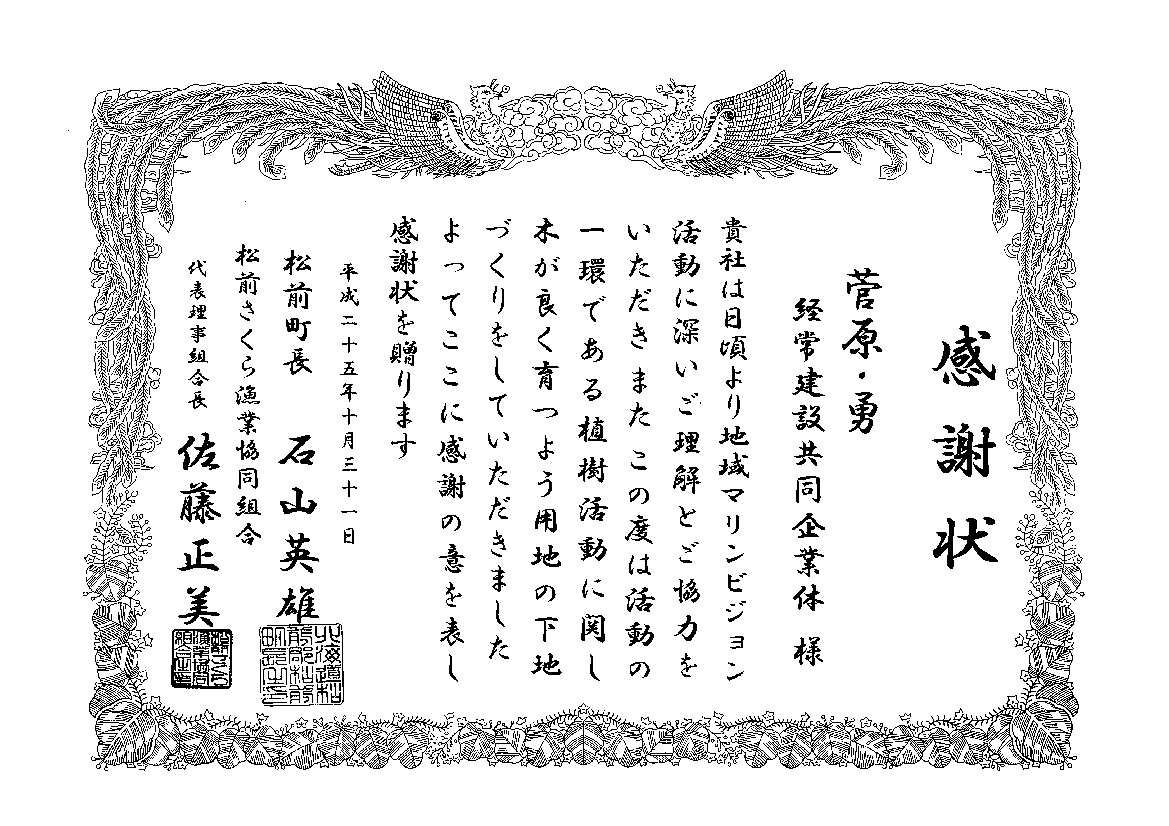 感謝状
菅原・勇
経常建設共同企業体 様
貴社は日頃より地域マリンビジョン
活動に深いご理解とご協力を
いただきまた この度は活動の
一環である植樹活動に関し
木が良く育つよう用地の下地
づくりをしていただきました
よってここに感謝の意を表し
感謝状を贈ります
平成二十五年十月三十一日
松前町長 石山英雄
松前さくら漁業協同組合
代表理事組合長 佐藤正美